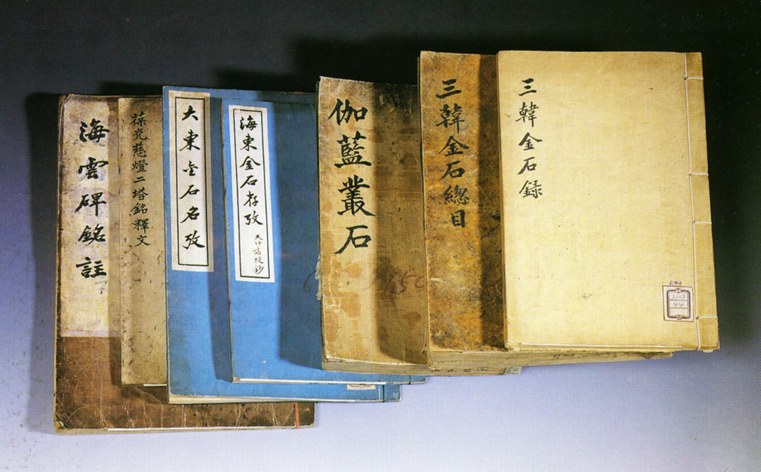 三韓金石録
三韓金石總目
伽藍叢石
海東金石存攷
大東金石名攷
葆光慈燈二塔銘釋文
海雲碑銘註